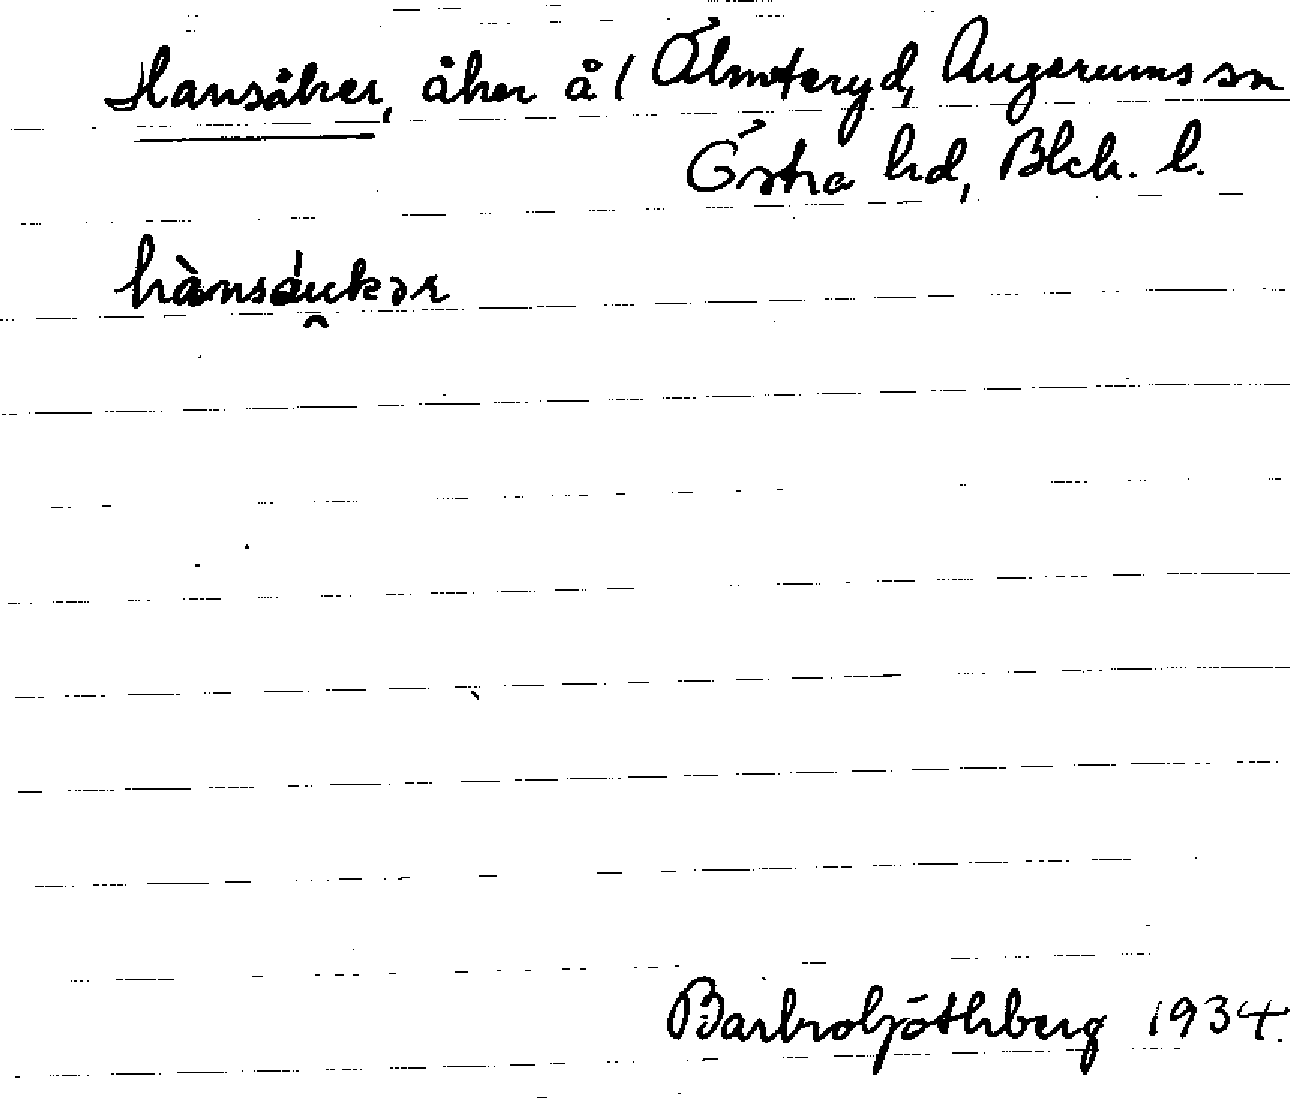 Hansåker, åker å/ Älmteryd, Augerums sn
Östra hd, Blek. l.
hànsáukər
Barbro Göthberg 1934.